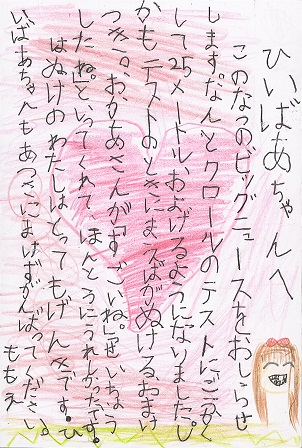 ひいばあちゃんへ
このなつのビッグニュースをおしらせ
します。なんとクロールのテストにごうかく
して25メートルおよげるようになりました。し
かもテストのときにまえばがぬけるおまけ
つき。おかあさんが「すごいね。せいちょう
したね。」といってくれて、ほんとうにうれしかったです。
はぬけのわたしはとってもげんきです。ひ
いばあちゃんもあつさにまけずがんばってください。
ももえ